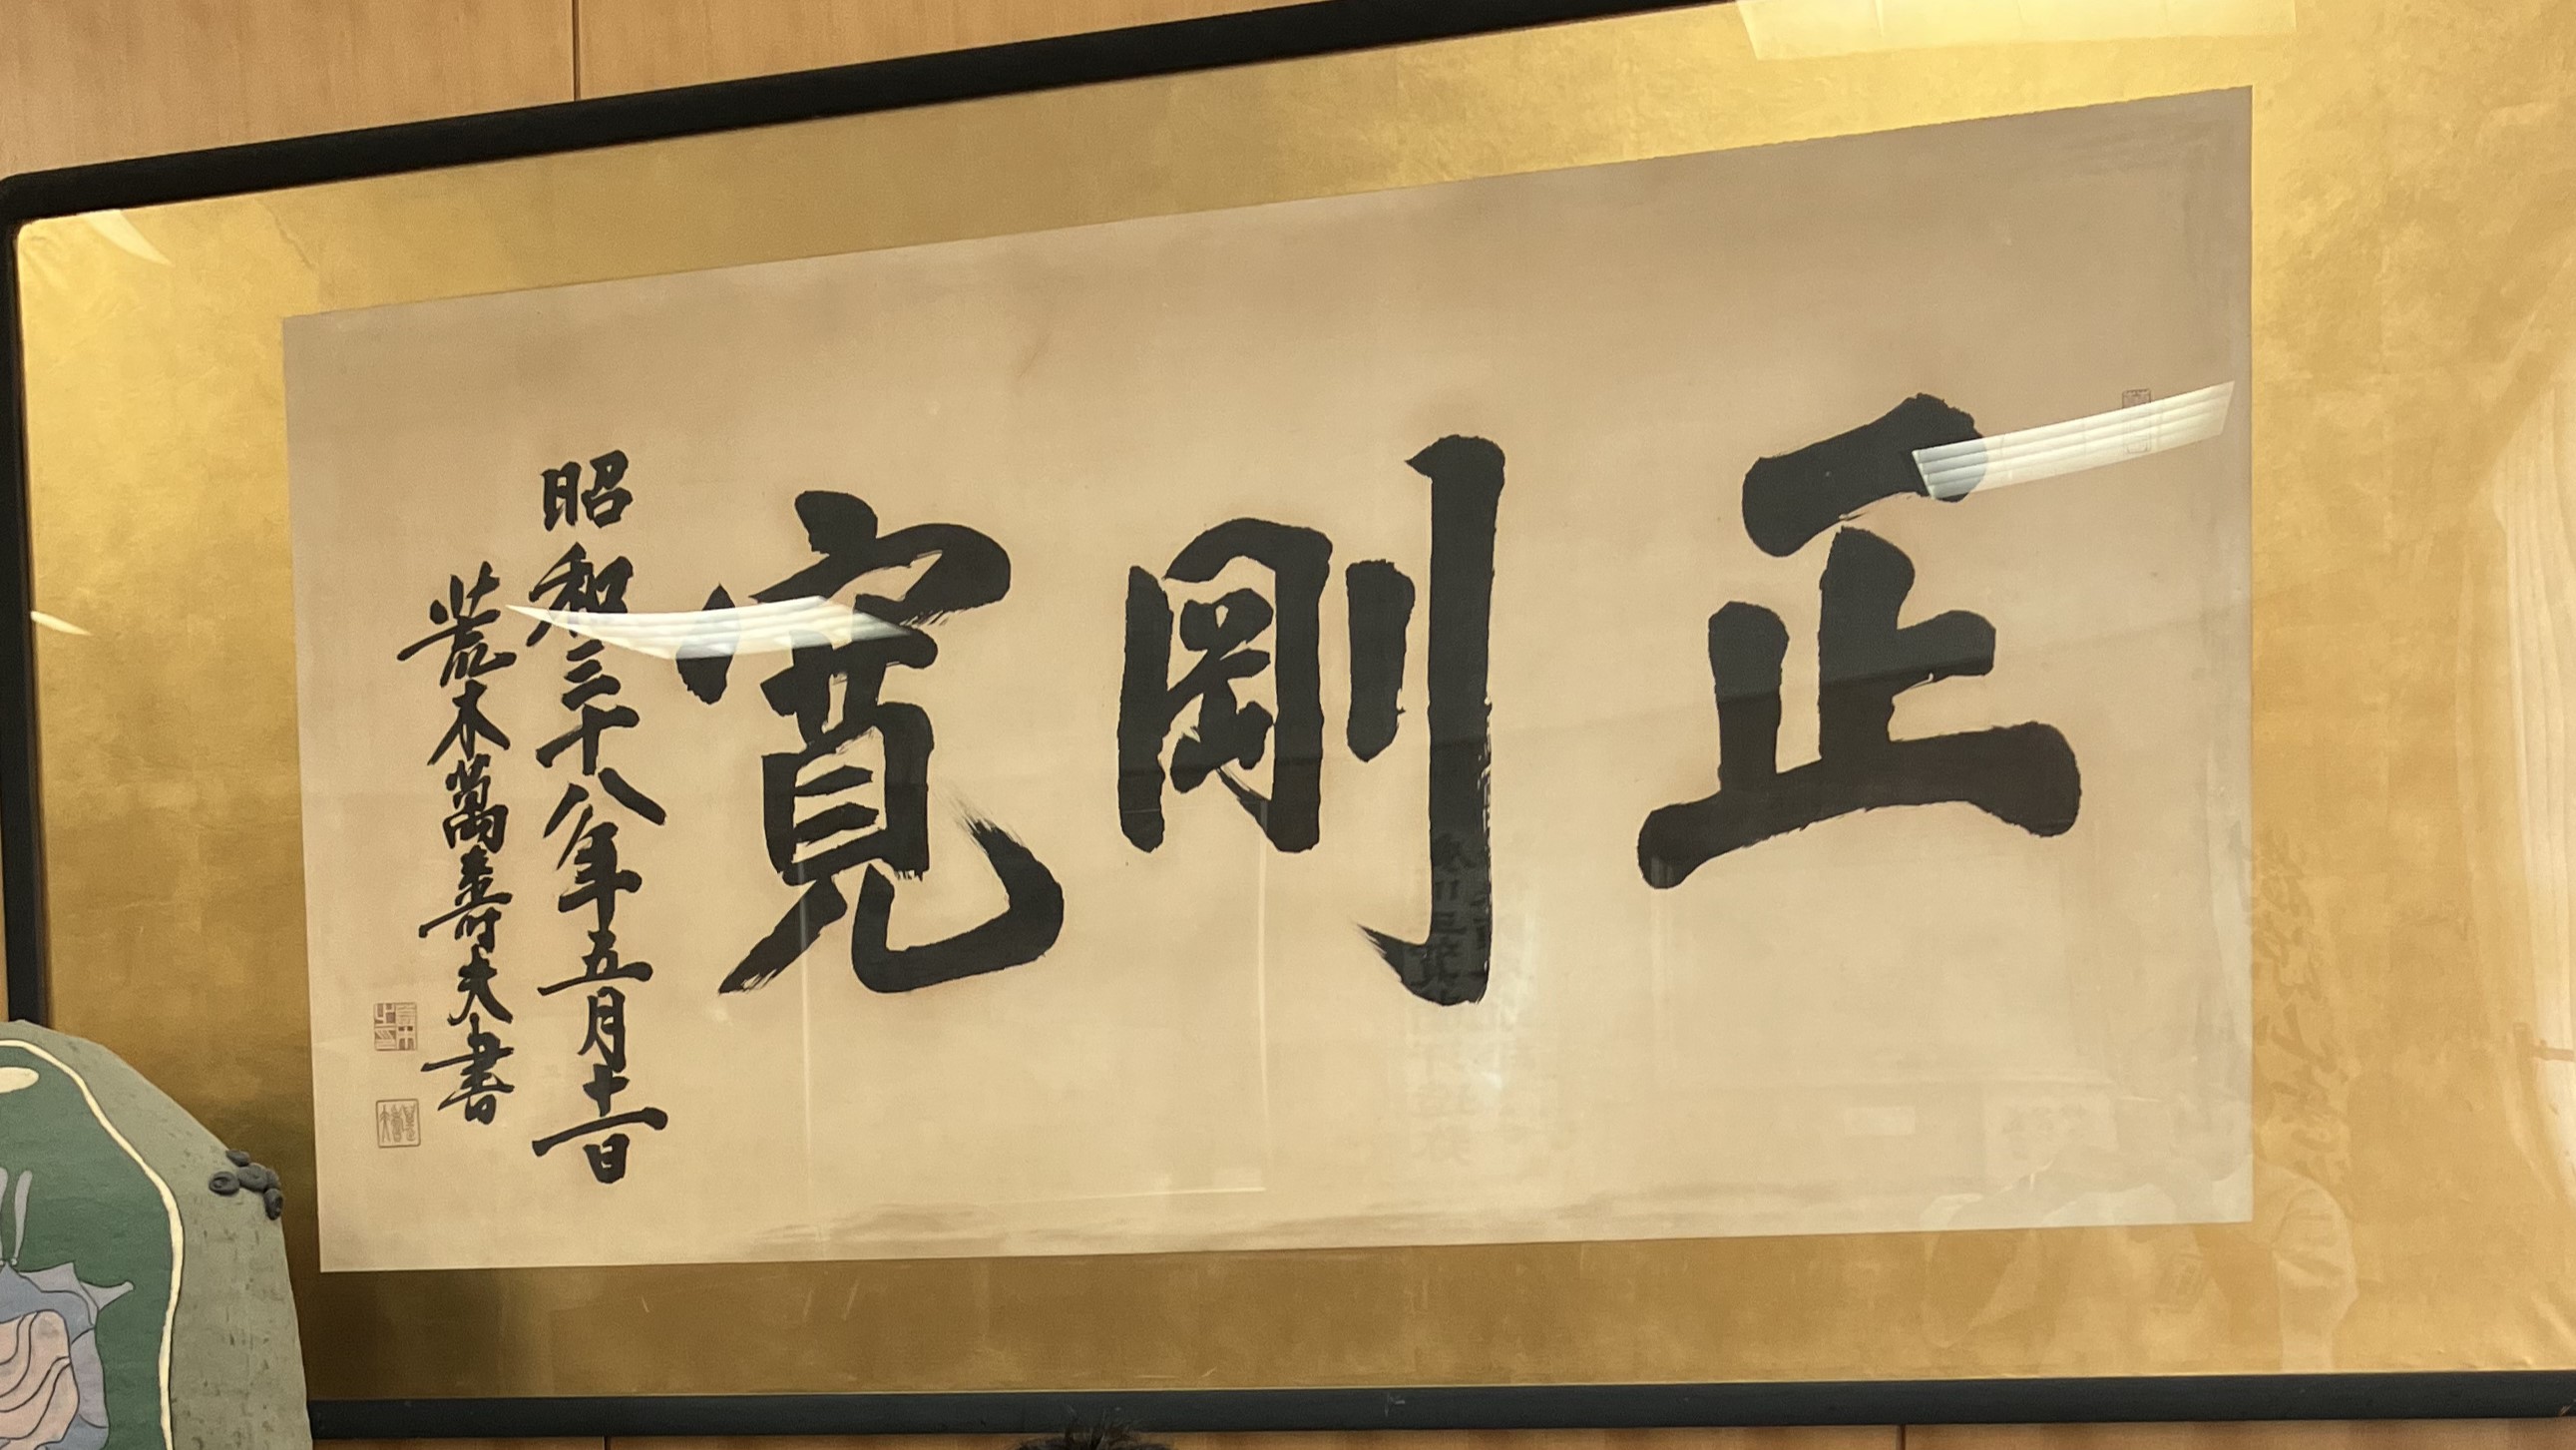 正剛寛
昭和三十八年五月十一日
荒木萬壽夫書